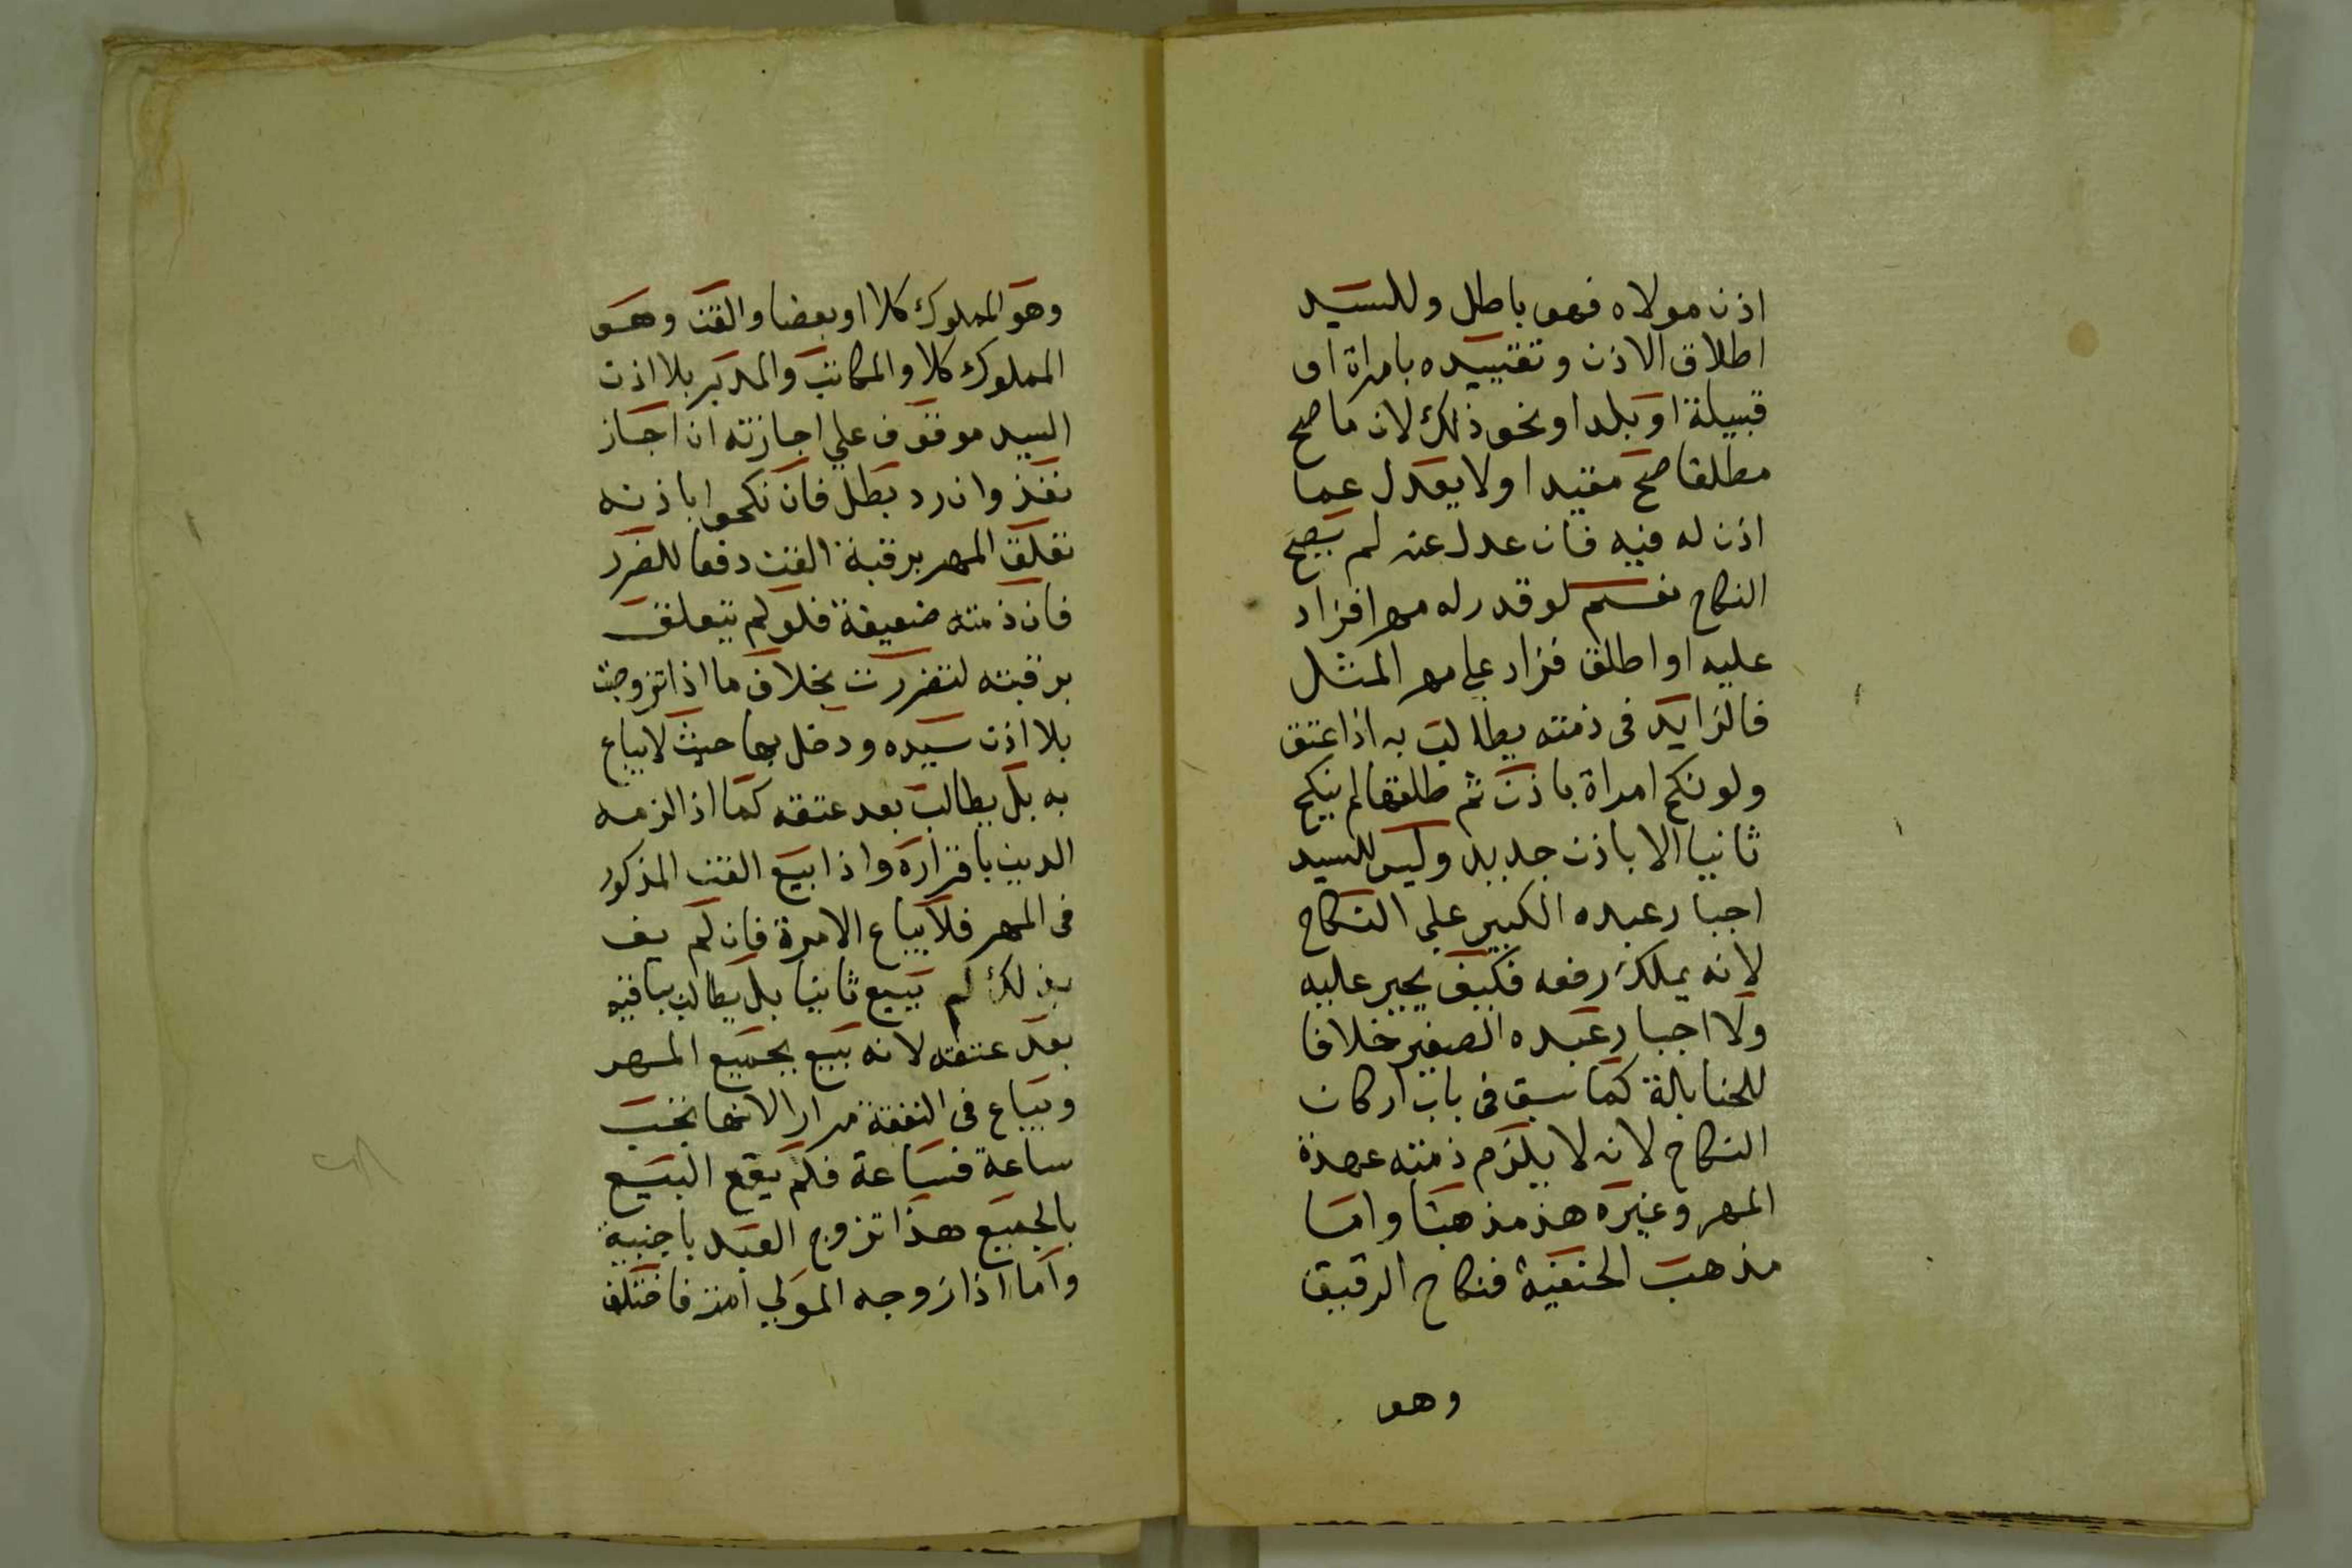 اذن مولاه فهو باطل وللسيد
اطلاق الاذن وتقييده بامراة او
قبيلة او بلد او نحو ذلك لان ما صح
مطلقا صح مقيدا ولا يعدل عما
اذن له فيه فان عدل عنه لم يصح
النكاح نعم لو قدر له مهرا فزاد
عليه او اطلق فزاد علي مهر المثل
فالزايد في ذمته يطالب به اذا عتق
ولو نكح امراة باذن ثم طلقها لم ينكح
ثانيا الا باذن جديد وليس للسيد
اجبار عبده الكبير علي النكاح
لانه يملك رفعه فكيف يجبر عليه
ولا اجبار عبده الصغير خلافا
للحنابلة كما سبق في باب اركان
النكاح لانه لا يلزم ذمته عهدة
المهر وغيره هذ مذهبنا واما
مذهب الحنفية فنكاح الرقيق
وهو
وهو المملوك كلا او بعضا والقن وهو
المملوك كلا والمكاتب والمدبر بلا اذن
السيد موقوف علي اجازته ان اجاز
نفذ وان رد بطل فان نكحوا باذنه
تعلق المهر برقبة القن دفعا للضرر
فان ذمته ضعيفة فلو لم يتعلق
برقبته لتضررت بخلاف ما اذا تزوجت
بلا اذن سيده ودخل بها حيث لا يباع
به بل يطالب بعد عتقه كما اذا لزمه
الدين باقراره واذا بيع القن المذكور
في المهر فلا يباع الا مرة فان لم يف
بذلك لم يبيع ثانيا بل يطالب بباقيه
بعد عتقه لانه بيع بجميع المهر
ويباع في النفقة مرارا لانها تجب
ساعة فساعة فلم يقع البيع
بالجميع هذا تزوج العبد باجنبية
واما اذا زوجه المولي امته فاختلف